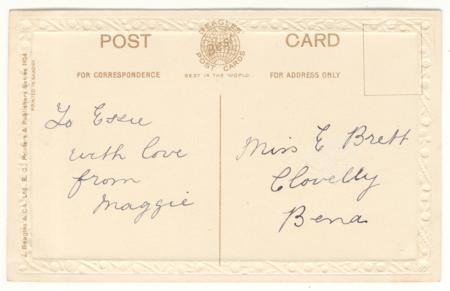 POST
BEAGLES
Best
POST CARDS
BEST IN THE WORLD
CARD
FOR CORRESPONDENCE
FOR ADDRESS ONLY
To Essie
with love
from
Maggie
Miss E Brett
Clovelly
Bena
J. Beagles & Co., Ltd., E. C., Printers & Publishers
PRINTED IN SAXONY